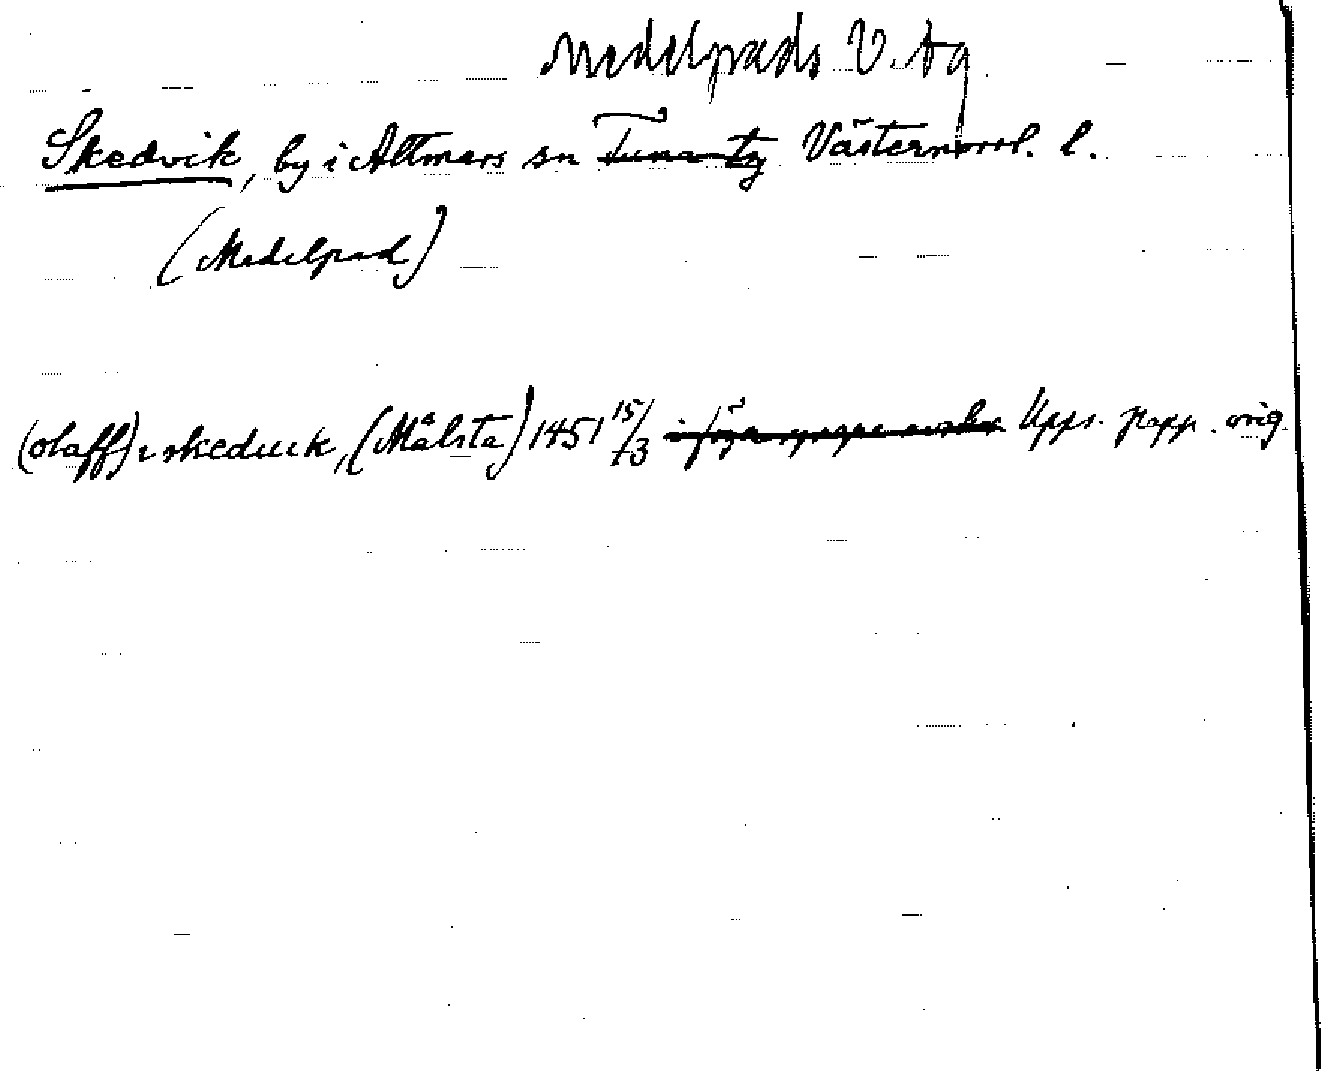 Medelpads V. tg
Skedvik, by i Attmars sn Tuna tg Västernorrl. l.
(Medelpad)
(olaff) i skeduik, (Målsta) 1451 15/3 Upps. papp. orig.